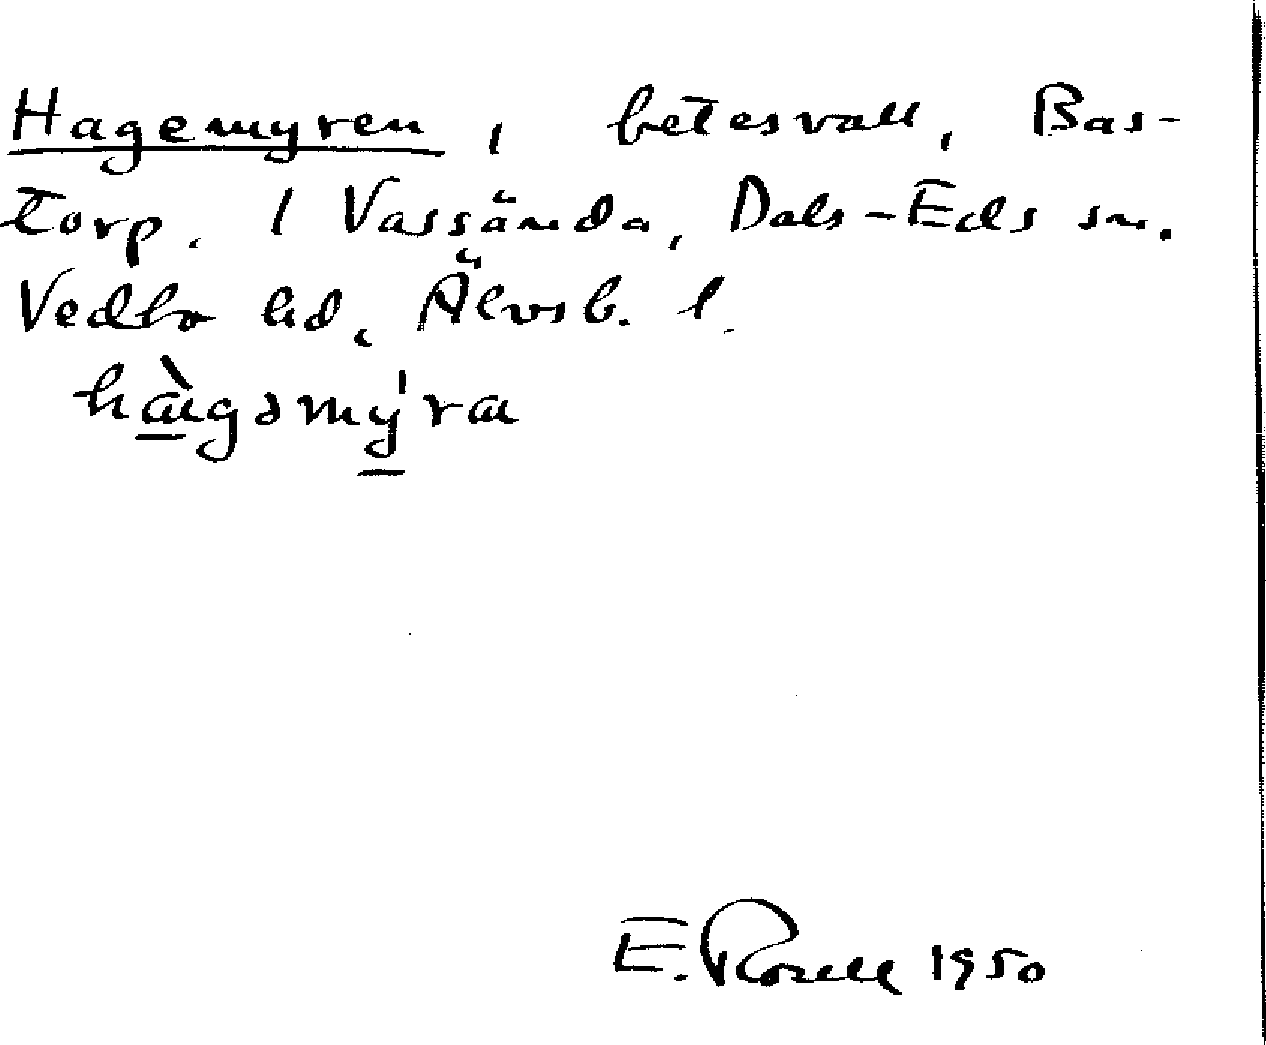 Hagemyren, betesvall, Bas-
torp. 1 Vassända, Dals-Eds sn.
Vedbo hd, Älvsb. l.
hàgəmýra
E. Rosell 1950